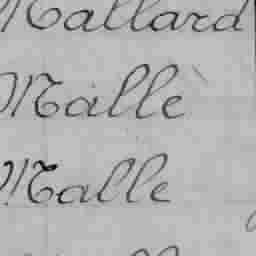 Mallard
Mallè
Malle